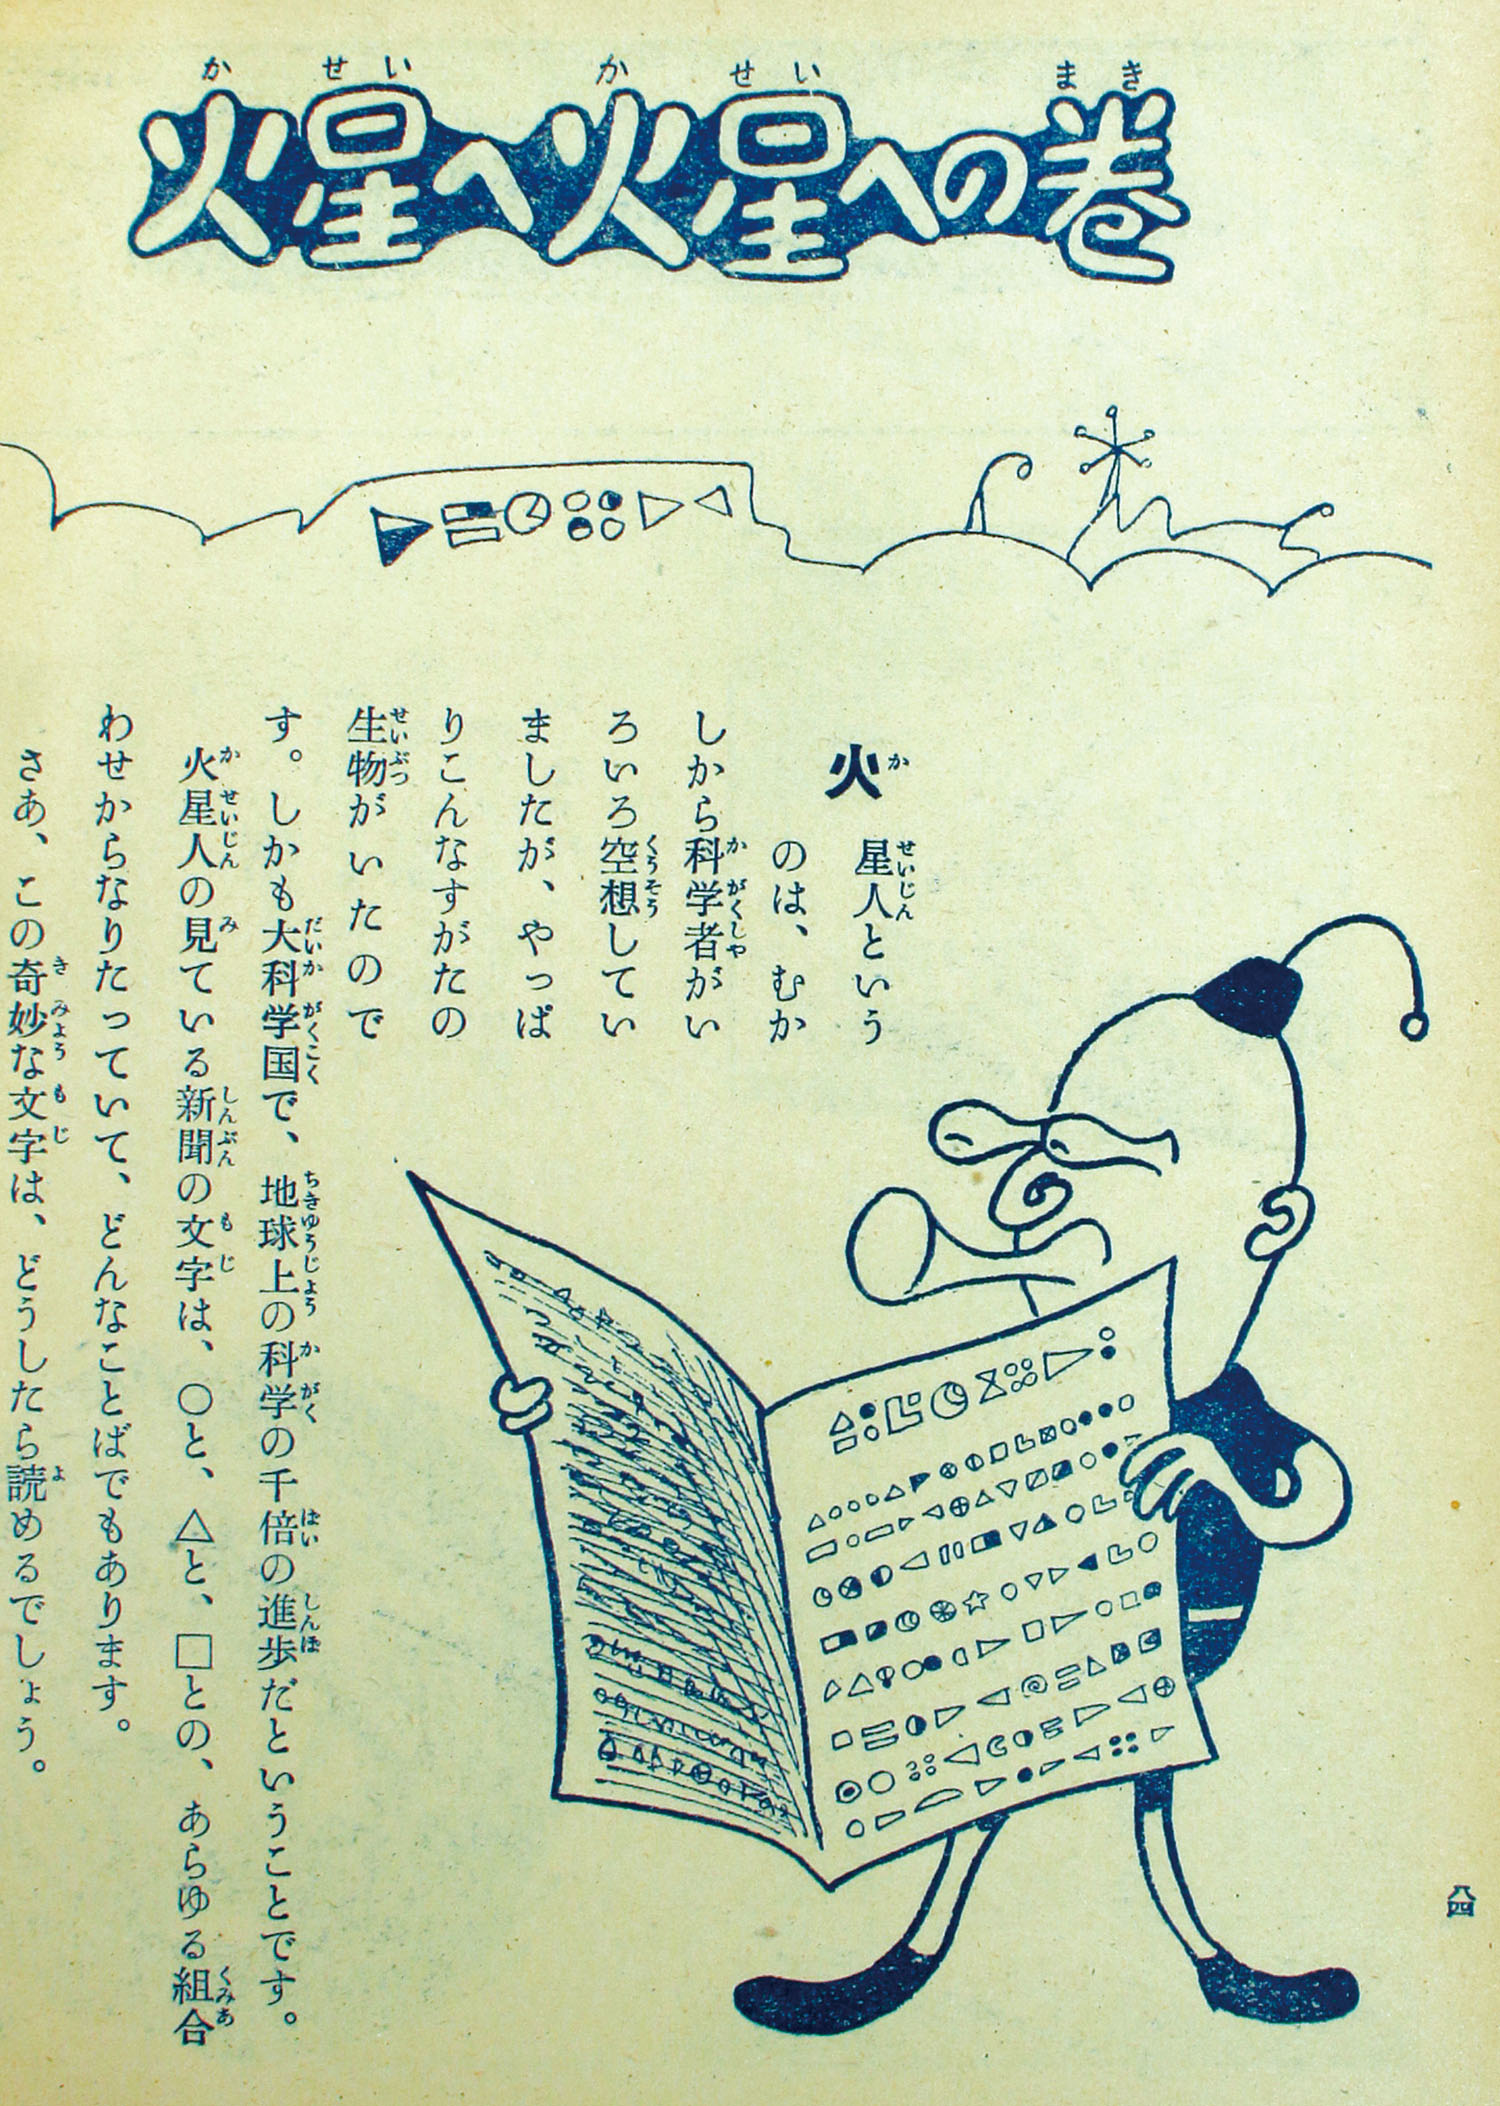 火星へ火星への巻
火星人という
のは、むか
しから科学者がい
ろいろ空想してい
ましたが、やっぱ
りこんなすがたの
生物がいたので
す。しかも大科学国で、地球上の科学の千倍の進歩だということです。
火星人の見ている新聞の文字は、○と、△と、□との、あらゆる組合
わせからなりたっていて、どんなことばでもあります。
さあ、この奇妙な文字は、どうしたら読めるでしょう。
八四